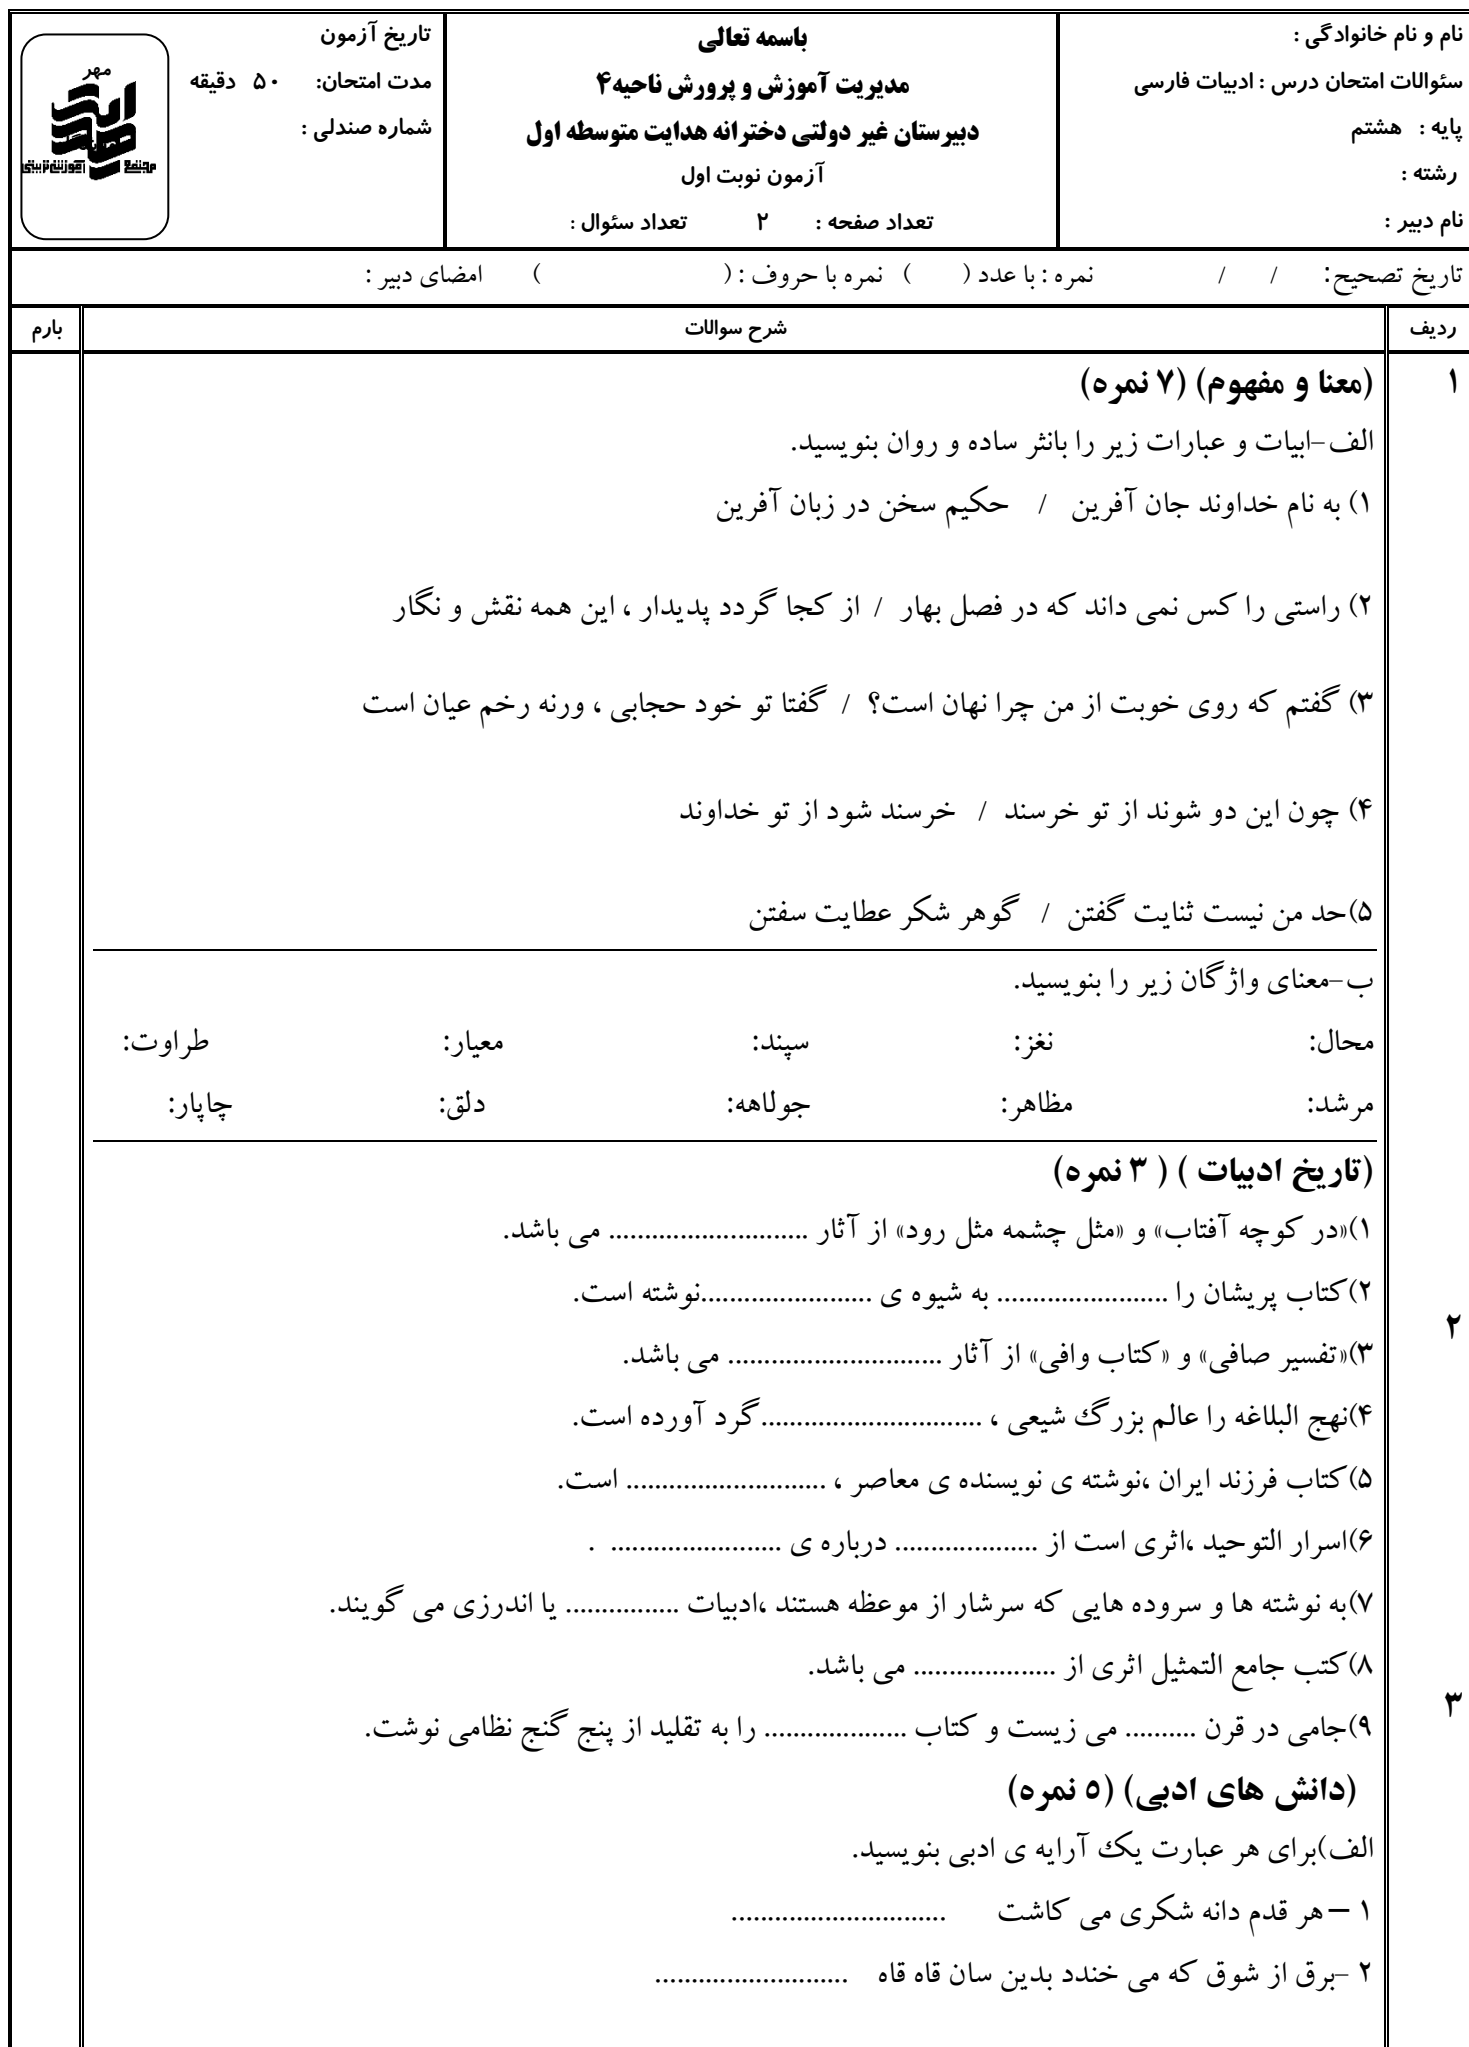 نام و نام خانوادگی :
سئوالات امتحان درس : ادبیات فارسی
پایه : هشتم
رشته :
نام دبیر :
باسمه تعالی
مدیریت آموزش و پرورش ناحیه۴
دبیرستان غیر دولتی دخترانه هدایت متوسطه اول
آزمون نوبت اول
تعداد صفحه : ۲ تعداد سئوال :
تاریخ آزمون
مدت امتحان: ۵۰ دقیقه
شماره صندلی :
مهر
مجتمع آموزشی تربیتی
تاریخ تصحیح: / / نمره : با عدد ( ) نمره با حروف : ( ) امضای دبیر :
ردیف شرح سوالات بارم
۱ (معنا و مفهوم) (۷ نمره)
الف-ابیات و عبارات زیر را بانثر ساده و روان بنویسید.
۱) به نام خداوند جان آفرین / حکیم سخن در زبان آفرین
۲) راستی را کس نمی داند که در فصل بهار / از کجا گردد پدیدار ، این همه نقش و نگار
۳) گفتم که روی خوبت از من چرا نهان است؟ / گفتا تو خود حجابی ، ورنه رخم عیان است
۴) چون این دو شوند از تو خرسند / خرسند شود از تو خداوند
۵)حد من نیست ثنایت گفتن / گوهر شکر عطایت سفتن
ب-معنای واژگان زیر را بنویسید.
محال: نغز: سپند: معیار: طراوت:
مرشد: مظاهر: جولاهه: دلق: چاپار:
(تاریخ ادبیات ) ( ۳ نمره)
۱)«در کوچه آفتاب» و «مثل چشمه مثل رود» از آثار ............................ می باشد.
۲)کتاب پریشان را ........................ به شیوه ی ........................نوشته است.
۲
۳)«تفسیر صافی» و «کتاب وافی» از آثار .............................. می باشد.
۴)نهج البلاغه را عالم بزرگ شیعی ، ...............................گرد آورده است.
۵)کتاب فرزند ایران ،نوشته ی نویسنده ی معاصر ، ............................ است.
۶)اسرار التوحید ،اثری است از .................... درباره ی ........................ .
۷)به نوشته ها و سروده هایی که سرشار از موعظه هستند ،ادبیات ................ یا اندرزی می گویند.
۸)کتب جامع التمثیل اثری از .................... می باشد.
۳
۹)جامی در قرن .......... می زیست و کتاب .................... را به تقلید از پنج گنج نظامی نوشت.
(دانش های ادبی) (۵ نمره)
الف)برای هر عبارت یک آرایه ی ادبی بنویسید.
۱ – هر قدم دانه شکری می کاشت .............................
۲ -برق از شوق که می خندد بدین سان قاه قاه ..........................